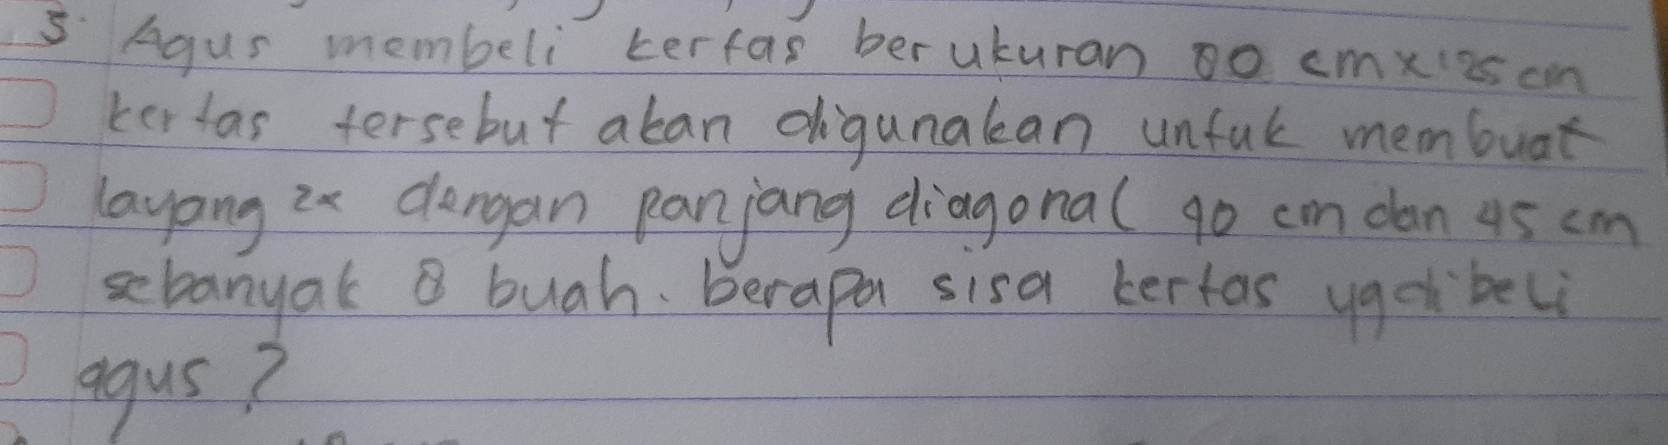 5. Agus membeli kertas berukuran 80 cm x 125 cm
kertas tersebut akan digunakan untuk membuat
layang 2x dengan panjang diagonal 90 cm dan 45 cm
sebanyak 8 buah. berapa sisa kertas yg dibeli
agus ?